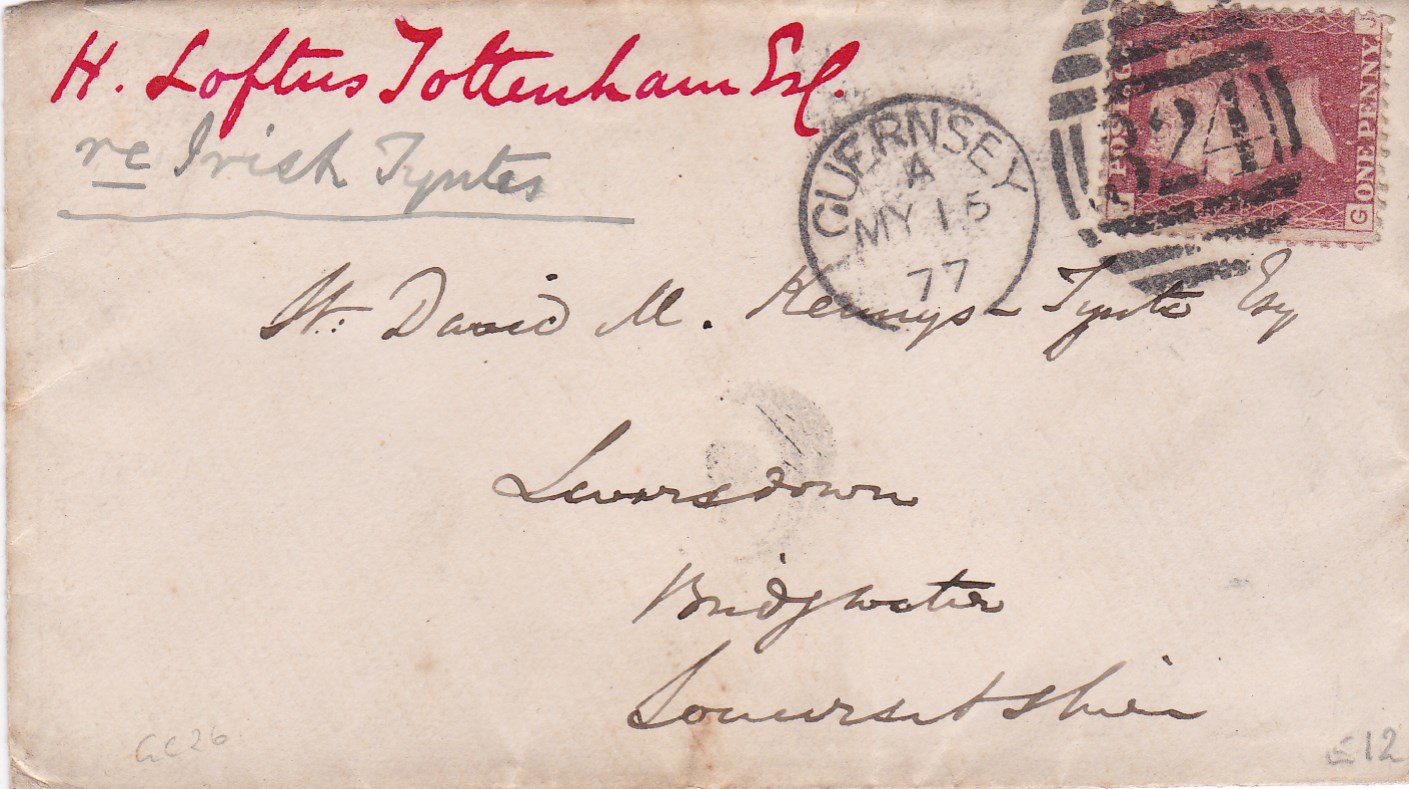 H. Loftus Tottenham Esq.
re Irish Tyntes
GUERNSEY
A
MY 15
77
324
POSTAGE
ONE PENNY
J
G
St. David M. Kemeys-Tynte Esq
Leversdown
Bridgwater
Somersetshire
GC26
£12